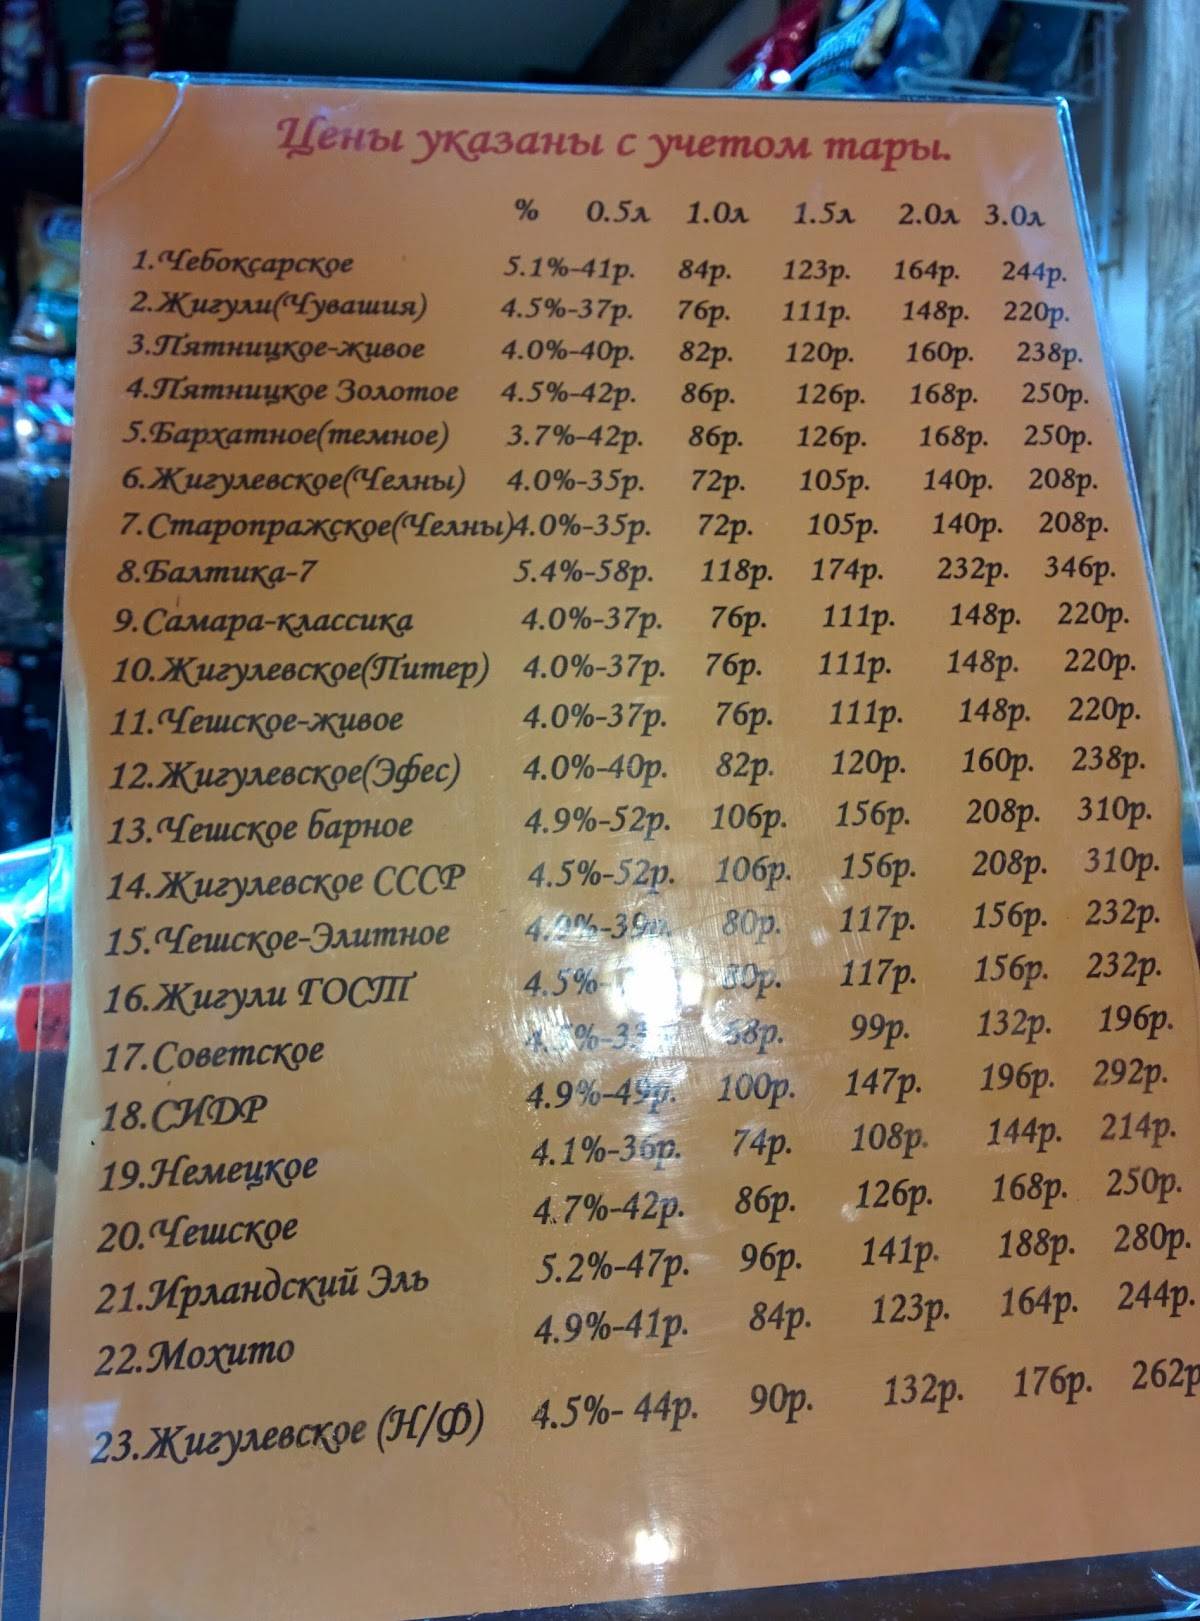 Цены указаны с учетом тары.
% 0.5л 1.0л 1.5л 2.0л 3.0л
1.Чебоксарское 5.1%-41р. 84р. 123р. 164р. 244р.
2.Жигули(Чувашия) 4.5%-37р. 76р. 111р. 148р. 220р.
3.Пятницкое-живое 4.0%-40р. 82р. 120р. 160р. 238р.
4.Пятницкое Золотое 4.5%-42р. 86р. 126р. 168р. 250р.
5.Бархатное(темное) 3.7%-42р. 86р. 126р. 168р. 250р.
6.Жигулевское(Челны) 4.0%-35р. 72р. 105р. 140р. 208р.
7.Старопражское(Челны)4.0%-35р. 72р. 105р. 140р. 208р.
8.Балтика-7 5.4%-58р. 118р. 174р. 232р. 346р.
9.Самара-классика 4.0%-37р. 76р. 111р. 148р. 220р.
10.Жигулевское(Питер) 4.0%-37р. 76р. 111р. 148р. 220р.
11.Чешское-живое 4.0%-37р. 76р. 111р. 148р. 220р.
12.Жигулевское(Эфес) 4.0%-40р. 82р. 120р. 160р. 238р.
13.Чешское барное 4.9%-52р. 106р. 156р. 208р. 310р.
14.Жигулевское СССР 4.5%-52р. 106р. 156р. 208р. 310р.
15.Чешское-Элитное 80р. 117р. 156р. 232р.
16.Жигули ГОСТ 4.5%- 80р. 117р. 156р. 232р.
17.Советское 68р. 99р. 132р. 196р.
18.СИДР 4.9%-49р. 100р. 147р. 196р. 292р.
19.Немецкое 4.1%-36р. 74р. 108р. 144р. 214р.
20.Чешское 4.7%-42р. 86р. 126р. 168р. 250р.
21.Ирландский Эль 5.2%-47р. 96р. 141р. 188р. 280р.
22.Мохито 4.9%-41р. 84р. 123р. 164р. 244р.
23.Жигулевское (Н/Ф) 4.5%- 44р. 90р. 132р. 176р. 262р